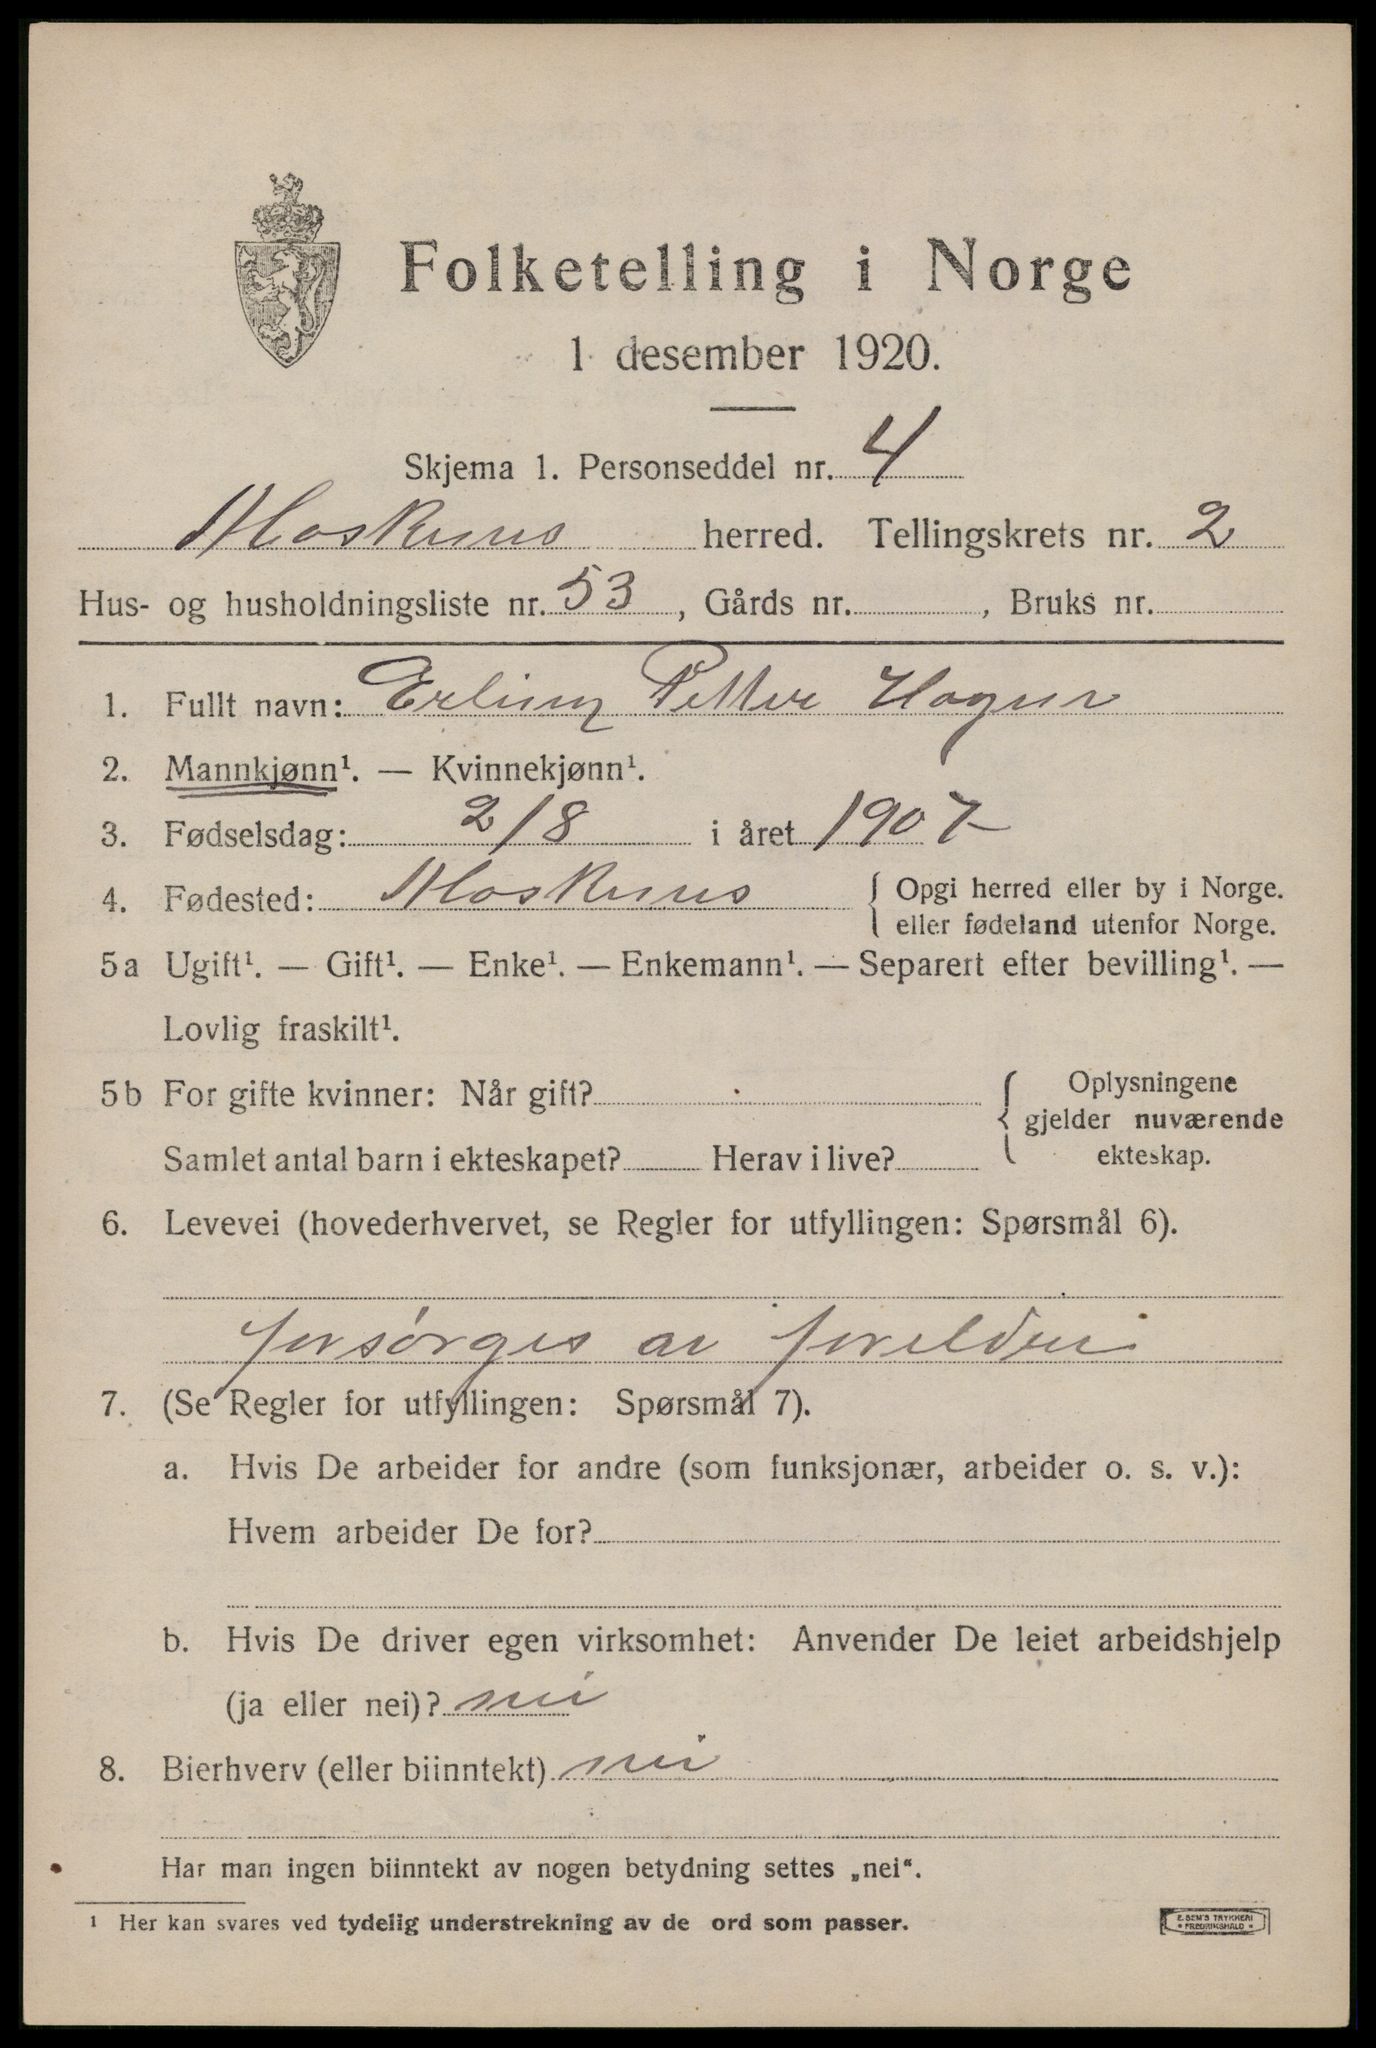 Folketelling i Norge
1 desember 1920.
Skjema 1. Personseddel nr. 4
Moskenes herred. Tellingskrets nr. 2
Hus- og husholdningsliste nr. 53, Gårds nr. , Bruks nr.
1. Fullt navn: Erling Petter Hagen
2. Mannkjønn¹. — Kvinnekjønn¹.
3. Fødselsdag: 2/8 i året 1907
4. Fødested: Moskenes { Opgi herred eller by i Norge.
eller fødeland utenfor Norge.
5a Ugift¹. — Gift¹. — Enke¹. — Enkemann¹. — Separert efter bevilling¹. —
Lovlig fraskilt¹.
5b For gifte kvinner: Når gift? { Oplysningene
gjelder nuværende
Samlet antal barn i ekteskapet? Herav i live? ekteskap.
6. Levevei (hovederhvervet, se Regler for utfyllingen: Spørsmål 6).
forsørges av foreldre
7. (Se Regler for utfyllingen: Spørsmål 7).
a. Hvis De arbeider for andre (som funksjonær, arbeider o. s. v.):
Hvem arbeider De for?
b. Hvis De driver egen virksomhet: Anvender De leiet arbeidshjelp
(ja eller nei)? nei
8. Bierhverv (eller biinntekt) nei
Har man ingen biinntekt av nogen betydning settes „nei“.
¹ Her kan svares ved tydelig understrekning av de ord som passer.
E. SEM'S TRYKKERI
* FREDRIKSHALD *